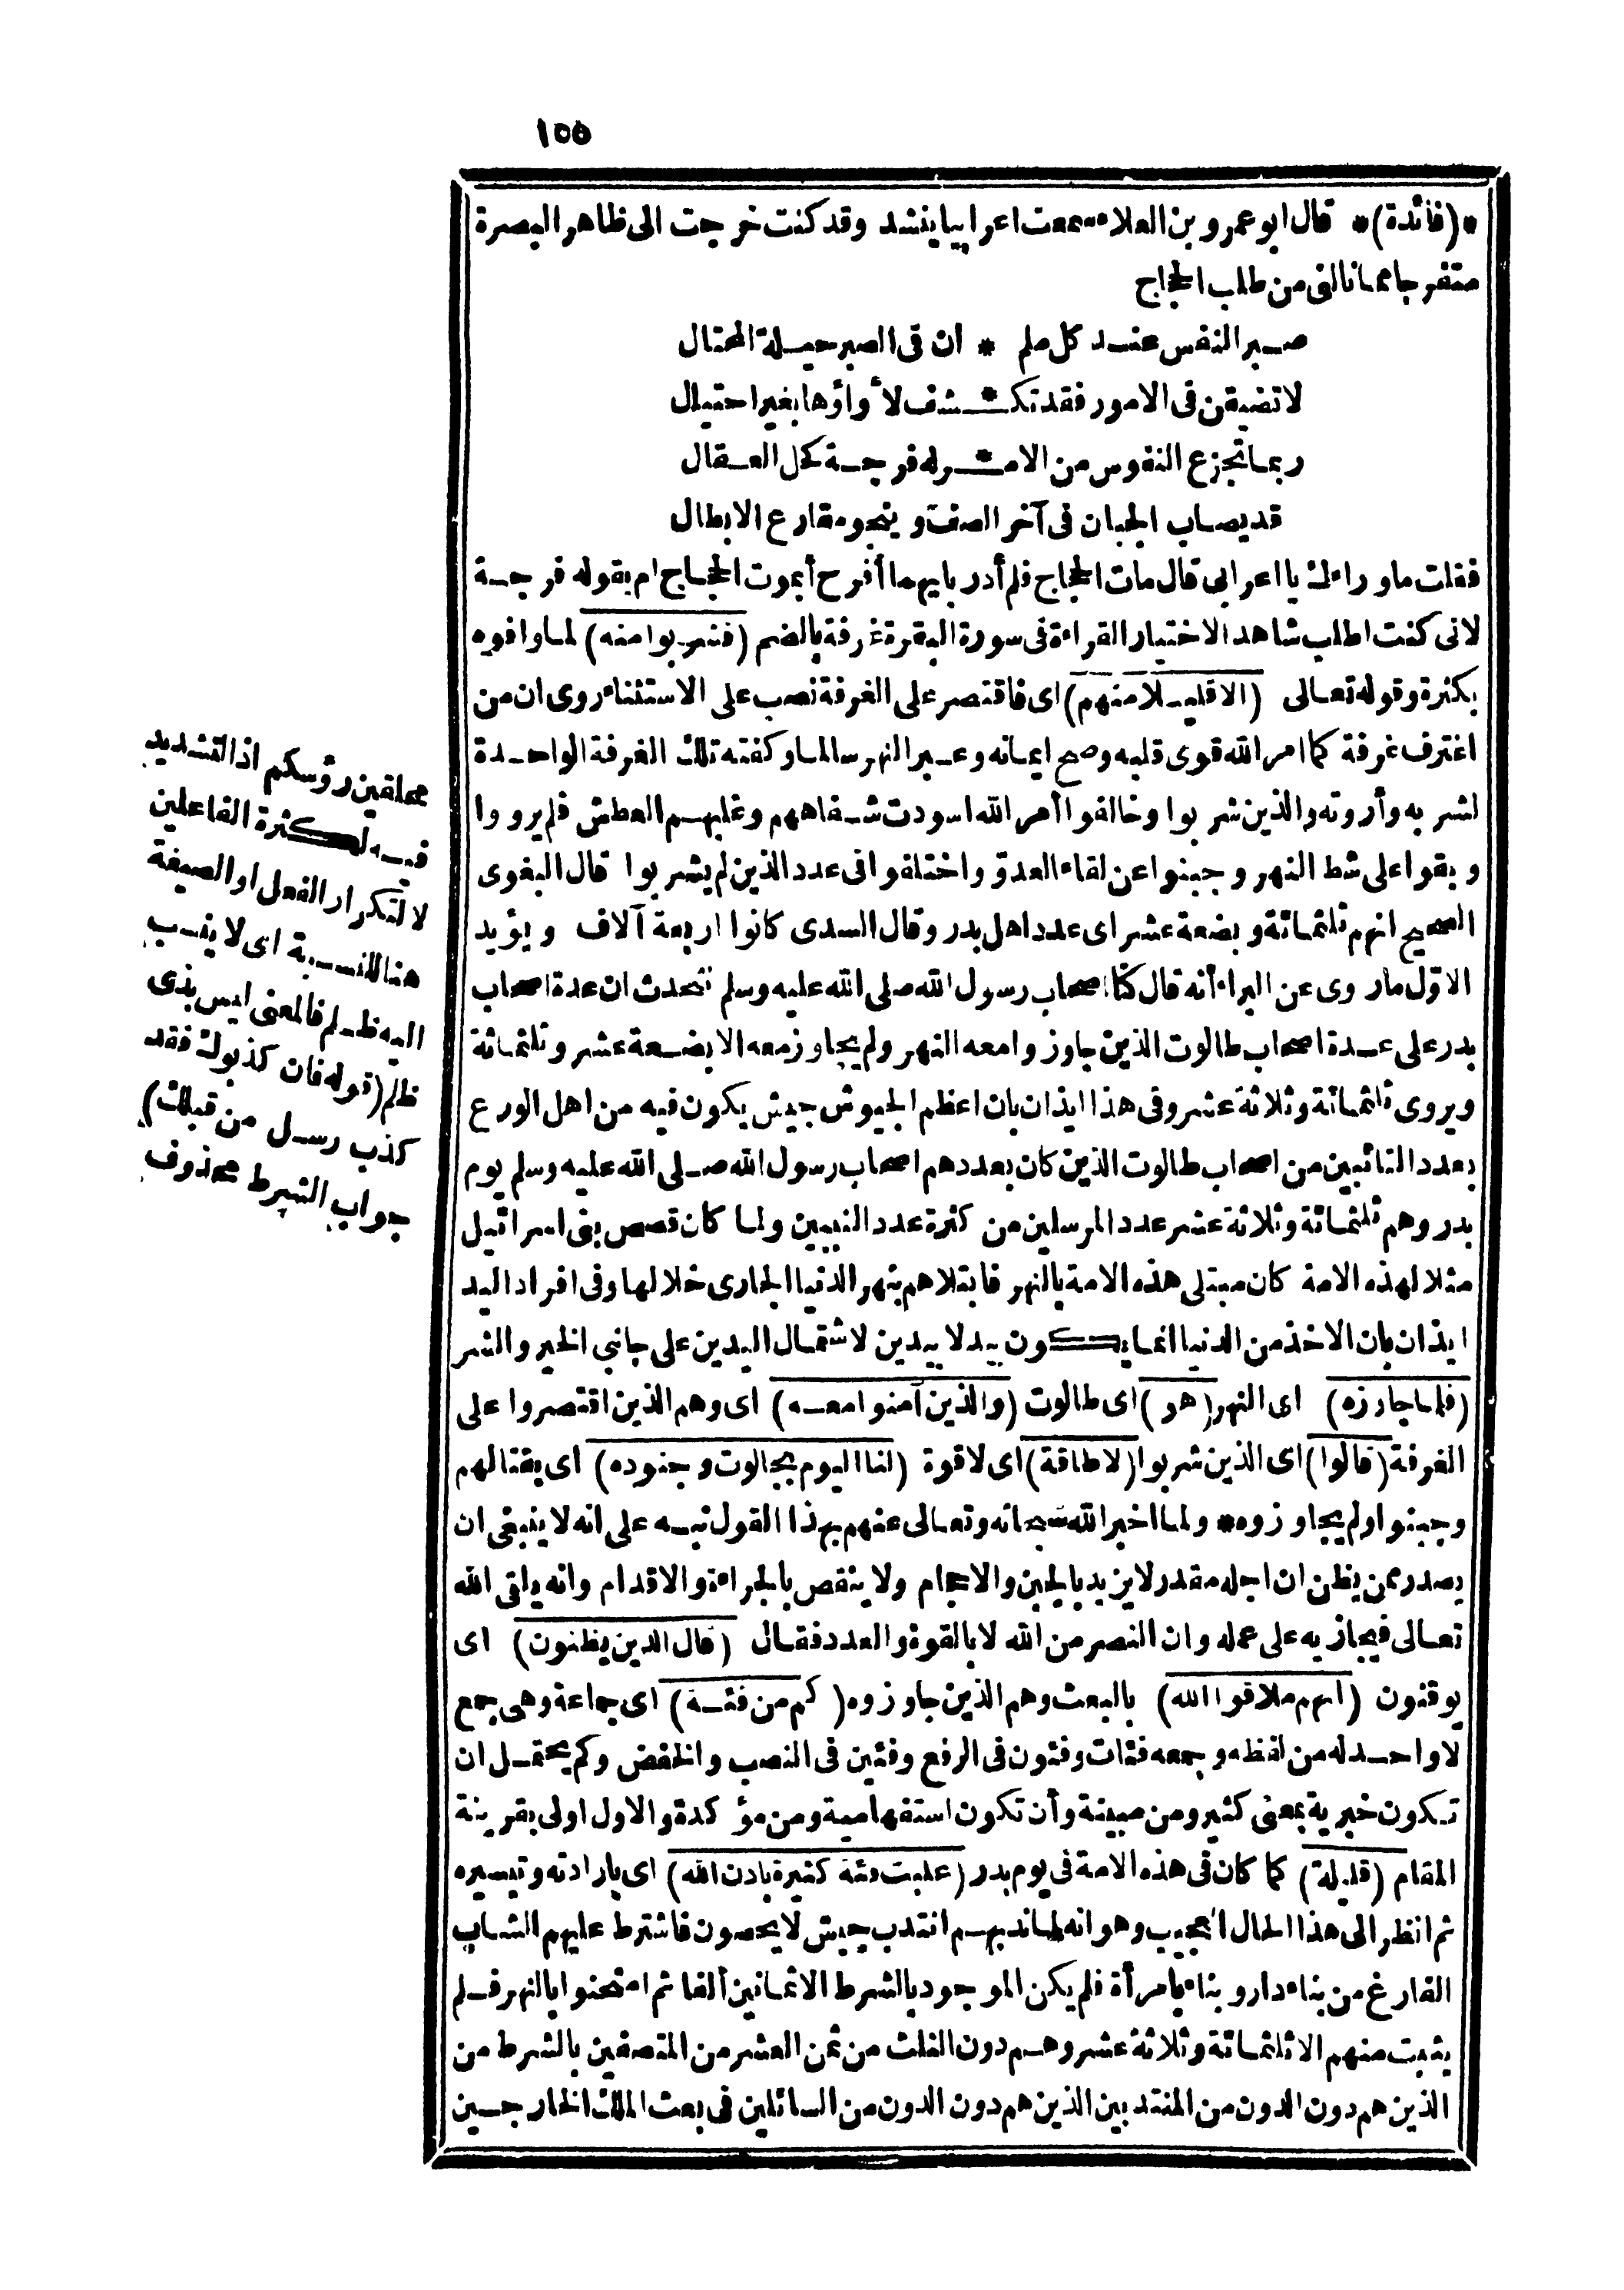 ١٥٥
*(فائدة)* قال ابو عمرو بن العلاء سمعت اعرابيا ينشد وقد كنت خرجت الى ظاهر البصرة
متفرجا مما نالنى من طلب الحجاج
صبر النفس عند كل ملم * ان فى الصبر حيلة المحتال
لا تضيقن فى الامور فقد تكشف * لأواؤها بغير احتيال
ربما تجزع النفوس من الامر * له فرجة كحل العقال
قد يصاب الجبان فى آخر الصف وينجو مقارع الابطال
فقلت ما وراءك يا اعرابى قال مات الحجاج فلم أدر بايهما أفرح أبموت الحجاج ام بقوله فرجة
لانى كنت اطلب شاهدا لاختيار القراءة فى سورة البقرة غرفة بالضم (فشربوا منه) لما وافوه
بكثرة وقوله تعالى (الا قليلا منهم) اى فاقتصر على الغرفة نصب على الاستثناء روى ان من
اغترف غرفة كما امر الله قوى قلبه وصح ايمانه وعبر النهر سالما وكفته تلك الغرفة الواحدة
لشربه وأروته والذين شربوا وخالفوا أمر الله اسودت شفاههم وغلبهم العطش فلم يرووا
وبقوا على شط النهر وجبنوا عن لقاء العدوّ واختلفوا فى عدد الذين لم يشربوا قال البغوى
الصحيح انهم ثلثمائة وبضعة عشر اى عدد اهل بدر وقال السدى كانوا اربعة آلاف ويؤيد
الاوّل ما روى عن البراء أنه قال كنا اصحاب رسول الله صلى الله عليه وسلم نتحدث ان عدة اصحاب
بدر على عدة اصحاب طالوت الذين جاوزوا معه النهر ولم يجاوز معه الا بضعة عشر وثلثمائة
ويروى ثلثمائة وثلاثة عشر وفى هذا ايذان بان اعظم الجيوش جيش يكون فيه من اهل الورع
بعدد التائبين من اصحاب طالوت الذين كان بعددهم اصحاب رسول الله صلى الله عليه وسلم يوم
بدر وهم ثلثمائة وثلاثة عشر عدد المرسلين من كثرة عدد النبيين ولما كان قصص بنى اسرائيل
مثلا لهذه الامة كان مبتلى هذه الامة بالنهر فابتلاهم بنهر الدنيا الجارى خلالها وفى افراد اليد
ايذان بان الاخذ من الدنيا انما يكون بيد لا بيدين لاشتمال اليدين على جانبى الخير والشر
(فلما جاوزه) اى النهر (هو) اى طالوت (والذين آمنوا معه) اى وهم الذين اقتصروا على
الغرفة (قالوا) اى الذين شربوا (لا طاقة) اى لا قوة (لنا اليوم بجالوت وجنوده) اى بقتالهم
وجبنوا ولم يجاوزوه * ولما اخبر الله سبحانه وتعالى عنهم بهذا القول نبه على انه لا ينبغى ان
يصدر ممن يظن ان اجله مقدر لا يزيد بالجبن والاحجام ولا ينقص بالجراءة والاقدام وانه يلقى الله
تعالى فيجازيه على عمله وان النصر من الله لا بالقوة والعدد فقال (قال الذين يظنون) اى
يوقنون (انهم ملاقوا الله) بالبعث وهم الذين جاوزوه (كم من فئة) اى جماعة وهى جمع
لا واحد له من لفظه وجمعه فئات وفئون فى الرفع وفئين فى النصب والخفض وكم يحتمل ان
تكون خبرية بمعنى كثير ومن مبينة وأن تكون استفهامية ومن مؤكدة والاول اولى بقرينة
المقام (قليلة) كما كان فى هذه الامة فى يوم بدر (غلبت فئة كثيرة باذن الله) اى بارادته وتيسيره
ثم انظر الى هذا الحال العجيب وهو انه لما ندبهم انتدب جيش لا يحصون فاشترط عليهم الشاب
الفارغ من بناء دار وبناء بامرأة فلم يكن الموجود بالشرط الا ثمانين ألفا ثم امتحنوا بالنهر فلم
يثبت منهم الا ثلثمائة وثلاثة عشر وهم دون الثلث من ثمن العشر من المتصفين بالشرط من
الذين هم دون الدون من المنتدبين الذين هم دون الدون من السائلين فى بعث الملك الخارجين
محلقين رؤسكم اذ التشديد
فيه لكثرة الفاعلين
لا لتكرار الفعل او الصيغة
هنا للنسبة اى لا ينسب
اليه ظلم فالمعنى ليس بذى
ظلم (قوله فان كذبوك فقد
كذب رسل من قبلك)
جواب الشرط محذوف